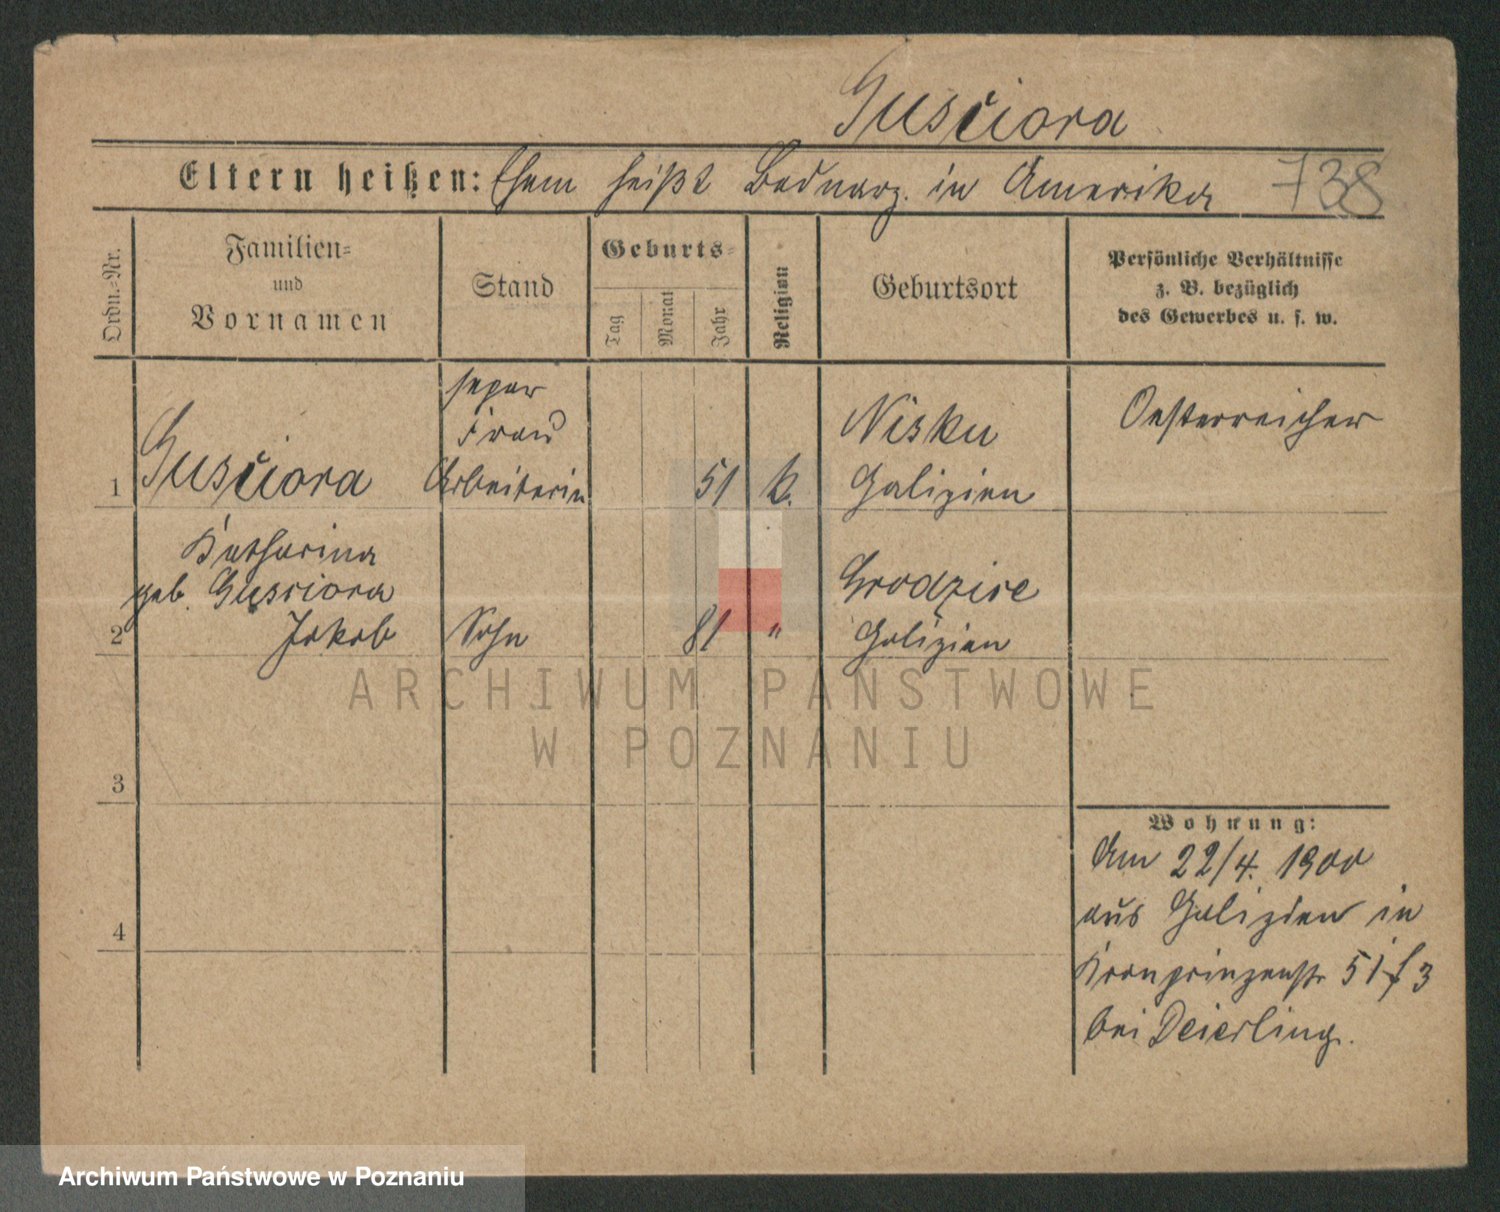 Gusćiora
Eltern heißen: Ehem heißt Bednarz. in Amerika 738
Ordn.-Nr.
Familien-
und
Vornamen
Stand
Geburts-
Tag
Monat
Jahr
Religion
Geburtsort
Persönliche Verhältnisse
z. B. bezüglich
des Gewerbes u. s. w.
separ
Frau
1 Gusćiora Arbeiterin 51 k.
Nisku
Galizien
Oesterreicher
Katharina
geb. Gusciora
2 Jakob Sohn 81 "
Grodzice
Galizien
3
4
Wohnung:
Am 22/4. 1900
aus Galizien in
Kronprinzenstr 51 f 3
bei Deierling.
ARCHIWUM PAŃSTWOWE
W POZNANIU
Archiwum Państwowe w Poznaniu